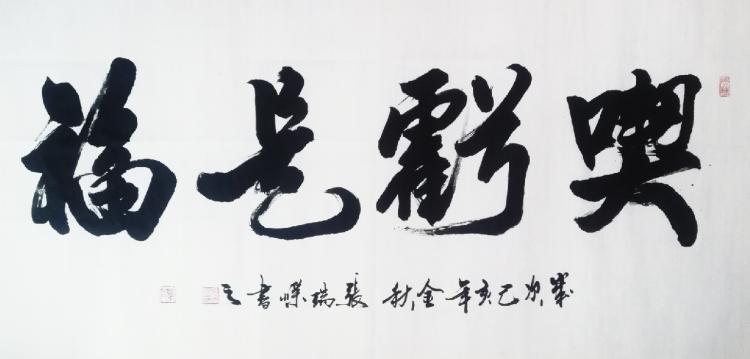 喫虧是福
歲次己亥年金秋 張瑞嶸書之